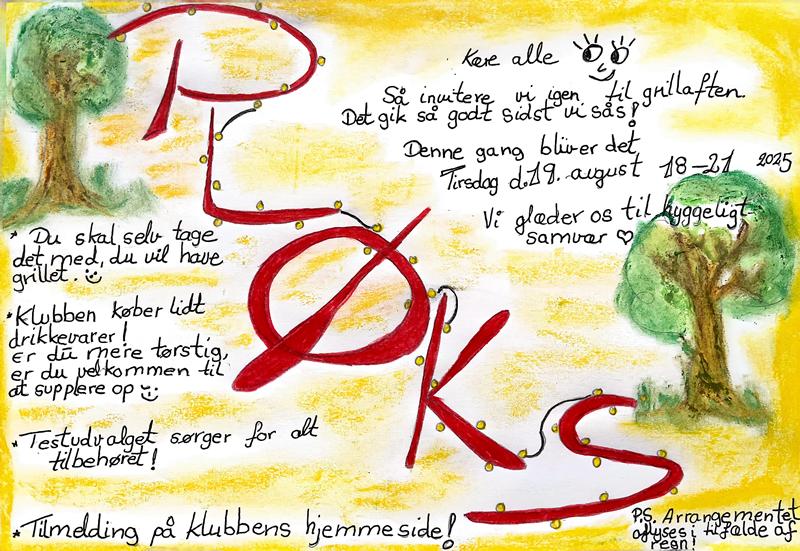 PLØKS
Kære alle
Så invitere vi igen til grillaften.
Det gik så godt sidst vi sås!
Denne gang bliver det
Tirsdag d.19. august 18-21 2025
Vi glæder os til hyggeligt
samvær ♡
* Du skal selv tage
det med, du vil have
grillet. :)
*Klubben køber lidt
drikkevarer!
er du mere tørstig,
er du velkommen til
at supplere op :)
*Testudvalget sørger for alt
tilbehøret!
*Tilmelding på klubbens hjemmeside!
P.S. Arrangementet
aflyses i tilfælde af
regn!